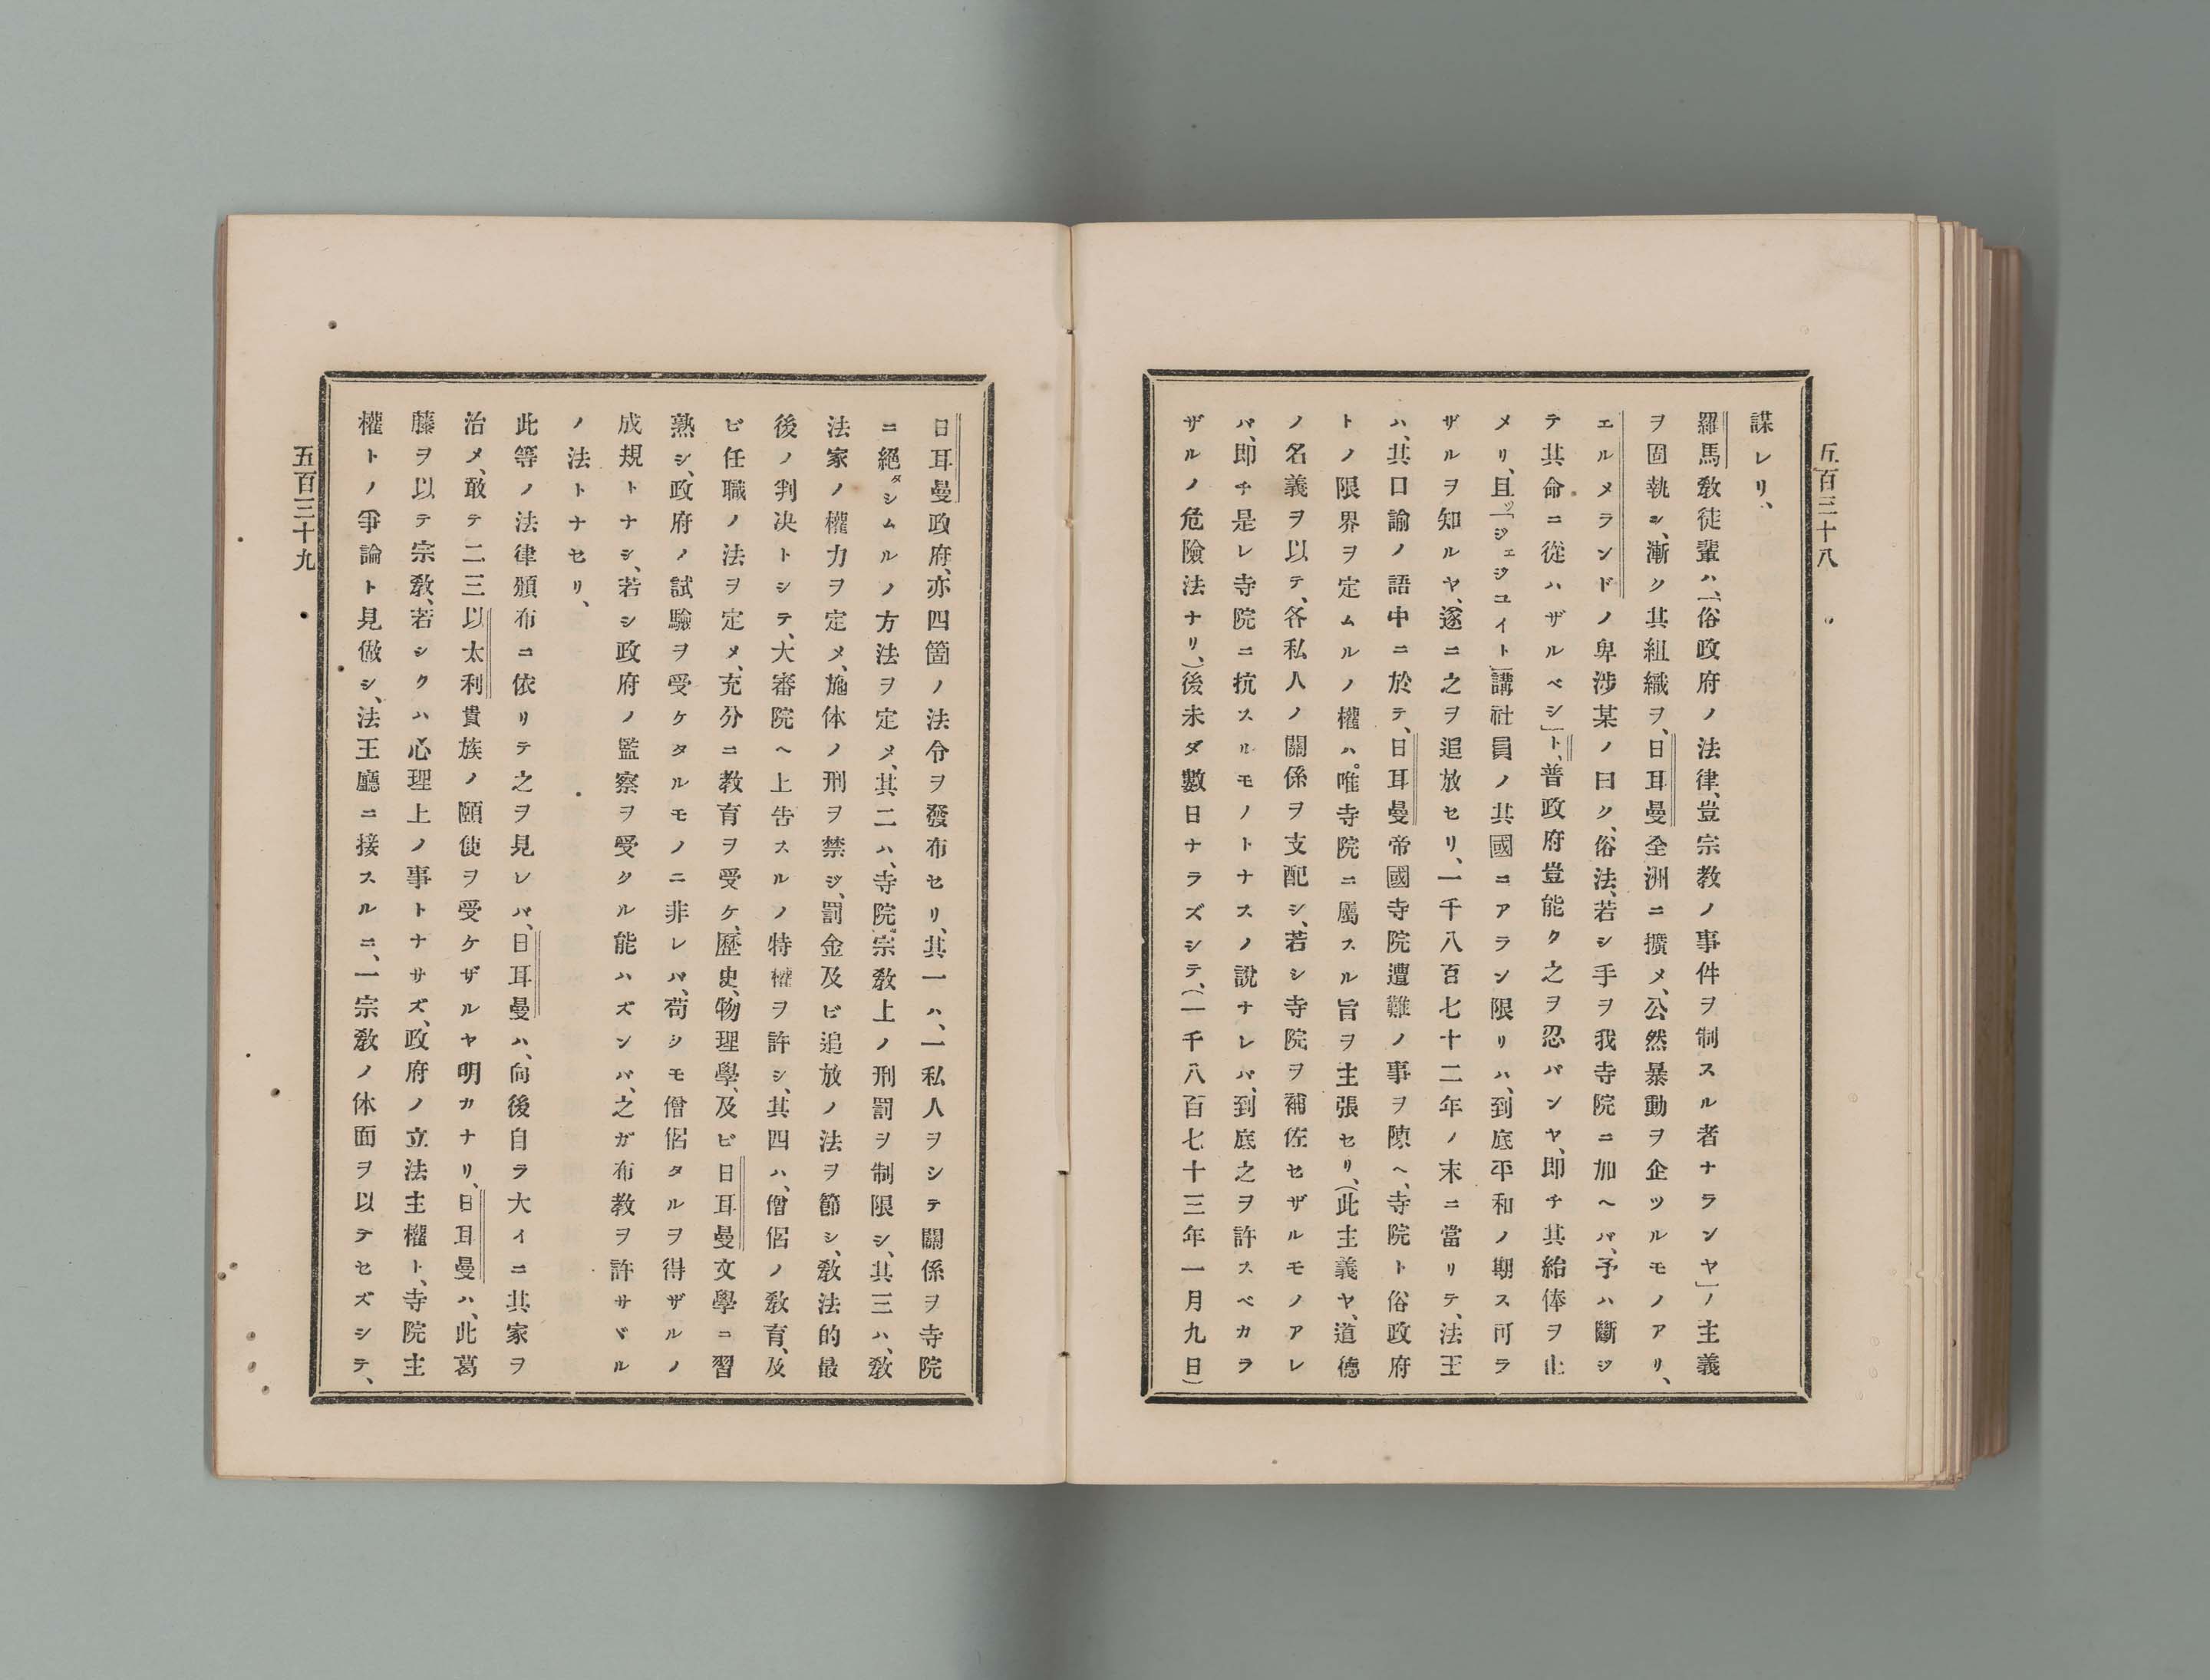 五百三十八
謀レリ、
羅馬敎徒輩ハ、「俗政府ノ法律、豈宗教ノ事件ヲ制スル者ナランヤ」ノ主義
ヲ固執シ、漸ク其組織ヲ、日耳曼全洲ニ擴メ、公然暴動ヲ企ツルモノアリ、
エルメランドノ卑渉某ノ曰ク、俗法、若シ手ヲ我寺院ニ加ヘバ、予ハ斷ジ
テ其命ニ從ハザルベシ」ト、普政府豈能ク之ヲ忍バンヤ、即チ其給俸ヲ止
メリ、且ツ「ジェジユイト」講社員ノ其國ニアラン限リハ、到底平和ノ期ス可ラ
ザルヲ知ルヤ、遂ニ之ヲ追放セリ、一千八百七十二年ノ末ニ當リテ、法王
ハ、其口諭ノ語中ニ於テ、日耳曼帝國寺院遭難ノ事ヲ陳ヘ、寺院ト俗政府
トノ限界ヲ定ムルノ權ハ。唯寺院ニ屬スル旨ヲ主張セリ、(此主義ヤ、道德
ノ名義ヲ以テ、各私人ノ關係ヲ支配シ、若シ寺院ヲ補佐セザルモノアレ
バ、即チ是レ寺院ニ抗スルモノトナスノ說ナレバ、到底之ヲ許スベカラ
ザルノ危險法ナリ、)後未ダ數日ナラズシテ、(一千八百七十三年一月九日)
日耳曼政府、亦四箇ノ法令ヲ發布セリ、其一ハ、一私人ヲシテ關係ヲ寺院
ニ絕タシムルノ方法ヲ定メ、其二ハ、寺院宗敎上ノ刑罰ヲ制限シ、其三ハ、敎
法家ノ權力ヲ定メ、施体ノ刑ヲ禁ジ、罰金及ビ追放ノ法ヲ節シ、敎法的最
後ノ判决トシテ、大審院ヘ上告スルノ特權ヲ許シ、其四ハ、僧侶ノ敎育、及
ビ任職ノ法ヲ定メ、充分ニ教育ヲ受ケ、歷史、物理學、及ビ日耳曼文學ニ習
熟シ、政府ノ試驗ヲ受ケタルモノニ非レバ、苟シモ僧侶タルヲ得ザルノ
成規トナシ、若シ政府ノ監察ヲ受クル能ハズンバ、之ガ布教ヲ許サヾル
ノ法トナセリ、
此等ノ法律頒布ニ依リテ之ヲ見レバ、日耳曼ハ、向後自ラ大イニ其家ヲ
治メ、敢テ二三以太利貴族ノ頤使ヲ受ケザルヤ明カナリ、日耳曼ハ、此葛
藤ヲ以テ宗敎、若シクハ心理上ノ事トナサズ、政府ノ立法主權ト、寺院主
權トノ爭論ト見做シ、法王廳ニ接スルニ、一宗敎ノ体面ヲ以テセズシテ、
五百三十九